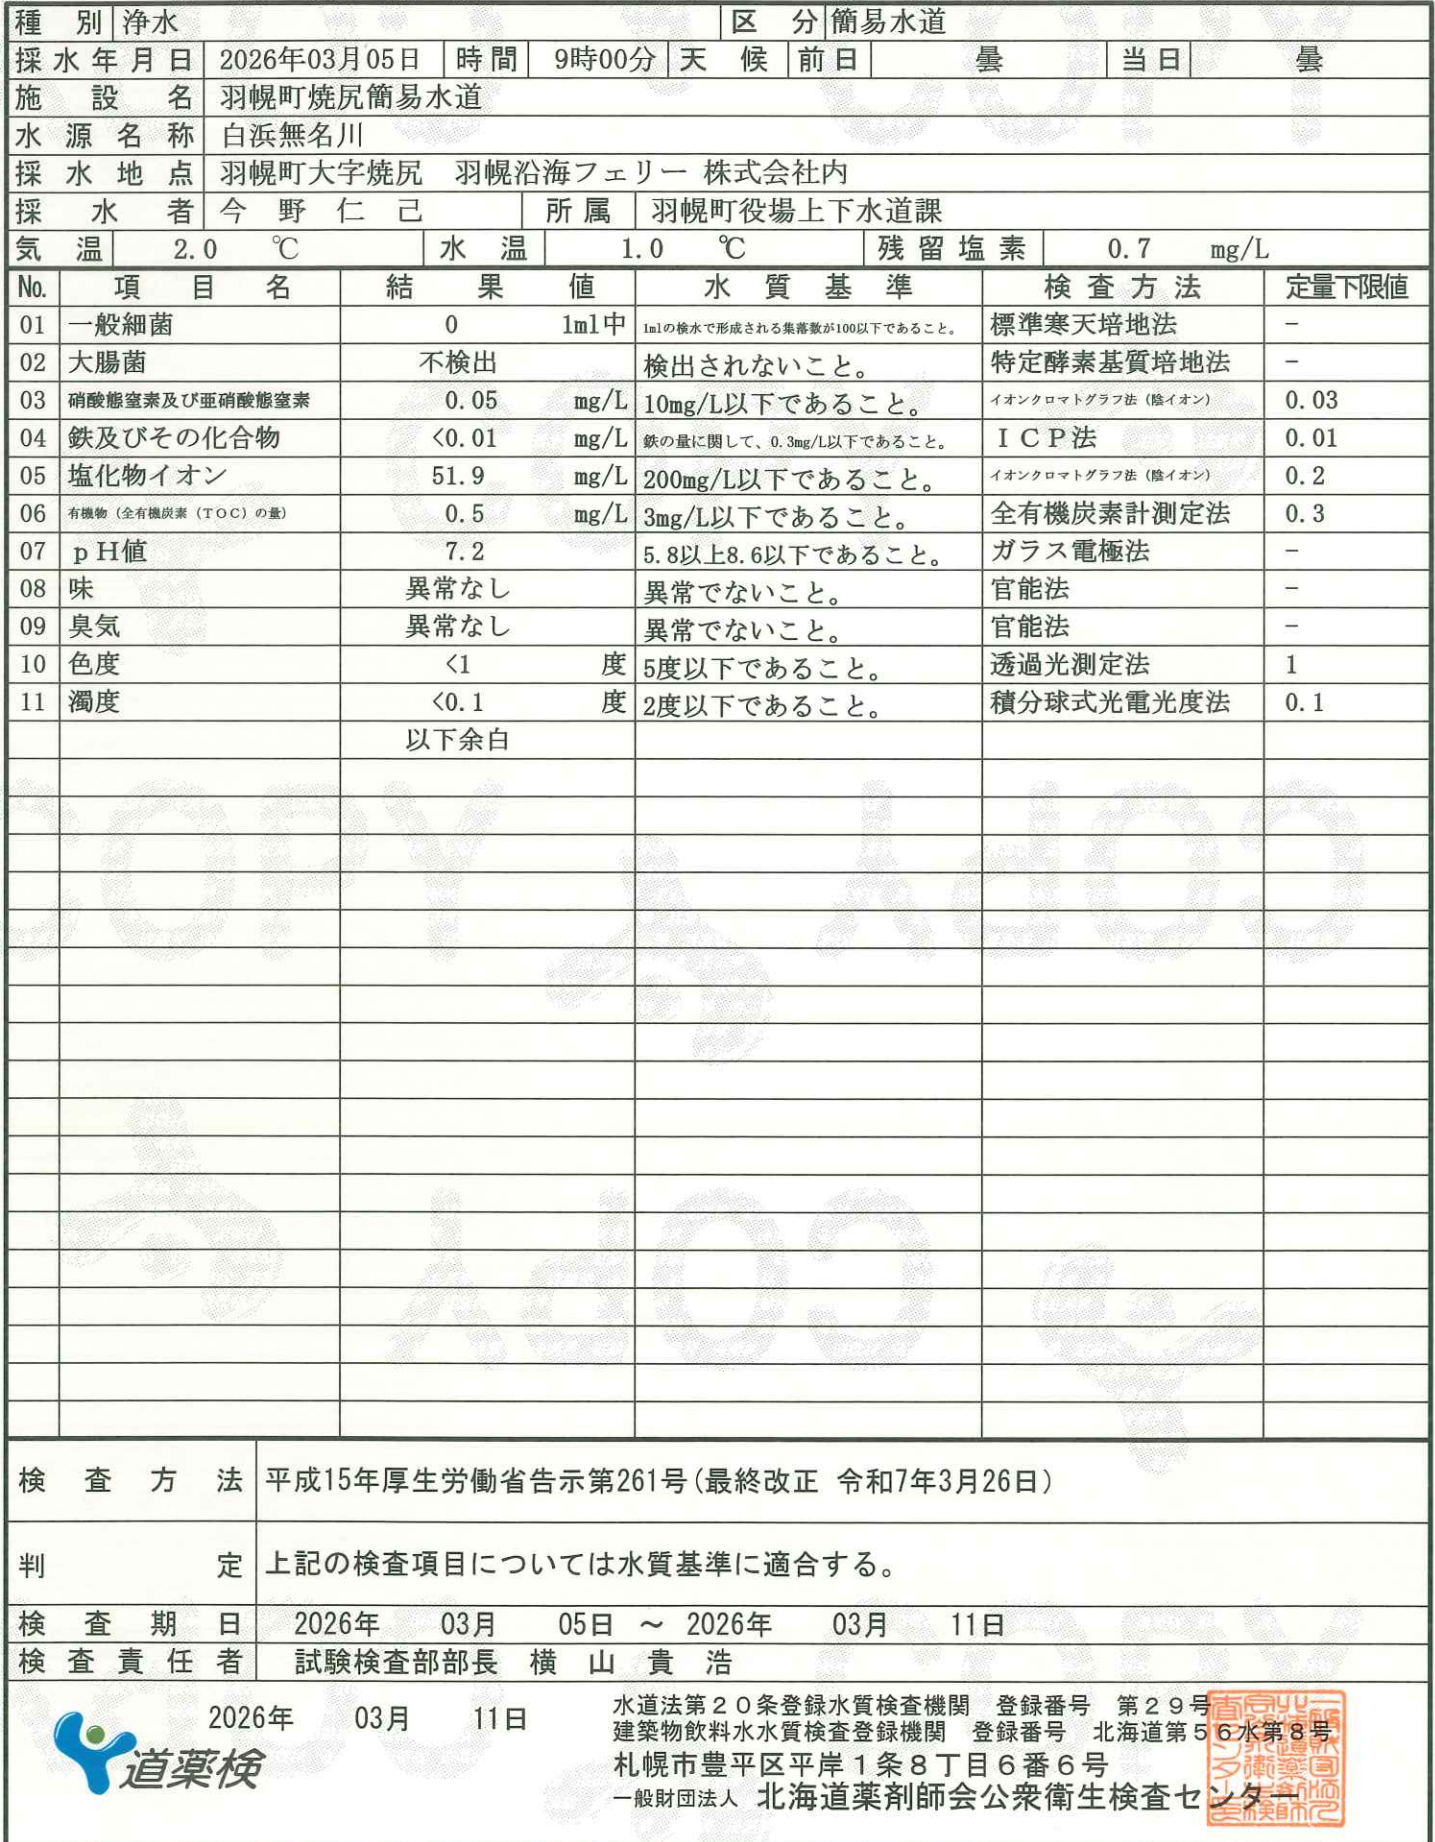 種 別 浄水 区 分 簡易水道
採水年月日 2026年03月05日 時間 9時00分 天 候 前日 曇 当日 曇
施 設 名 羽幌町焼尻簡易水道
水 源 名 称 白浜無名川
採 水 地 点 羽幌町大字焼尻 羽幌沿海フェリー 株式会社内
採 水 者 今 野 仁 己 所属 羽幌町役場上下水道課
気 温 2.0 ℃ 水 温 1.0 ℃ 残留塩素 0.7 mg/L
No. 項 目 名 結 果 値 水 質 基 準 検査方法 定量下限値
01 一般細菌 0 1ml中 1mlの検水で形成される集落数が100以下であること。 標準寒天培地法 −
02 大腸菌 不検出 検出されないこと。 特定酵素基質培地法 −
03 硝酸態窒素及び亜硝酸態窒素 0.05 mg/L 10mg/L以下であること。 イオンクロマトグラフ法（陰イオン） 0.03
04 鉄及びその化合物 <0.01 mg/L 鉄の量に関して、0.3mg/L以下であること。 ＩＣＰ法 0.01
05 塩化物イオン 51.9 mg/L 200mg/L以下であること。 イオンクロマトグラフ法（陰イオン） 0.2
06 有機物（全有機炭素（TOC）の量） 0.5 mg/L 3mg/L以下であること。 全有機炭素計測定法 0.3
07 ｐＨ値 7.2 5.8以上8.6以下であること。 ガラス電極法 −
08 味 異常なし 異常でないこと。 官能法 −
09 臭気 異常なし 異常でないこと。 官能法 −
10 色度 <1 度 5度以下であること。 透過光測定法 1
11 濁度 <0.1 度 2度以下であること。 積分球式光電光度法 0.1
以下余白
検 査 方 法 平成15年厚生労働省告示第261号(最終改正 令和7年3月26日)
判 定 上記の検査項目については水質基準に適合する。
検 査 期 日 2026年 03月 05日 ～ 2026年 03月 11日
検査責任者 試験検査部部長 横 山 貴 浩
2026年 03月 11日
道薬検
水道法第２０条登録水質検査機関 登録番号 第２９号
建築物飲料水水質検査登録機関 登録番号 北海道第５６水第８号
札幌市豊平区平岸１条８丁目６番６号
一般財団法人 北海道薬剤師会公衆衛生検査センター